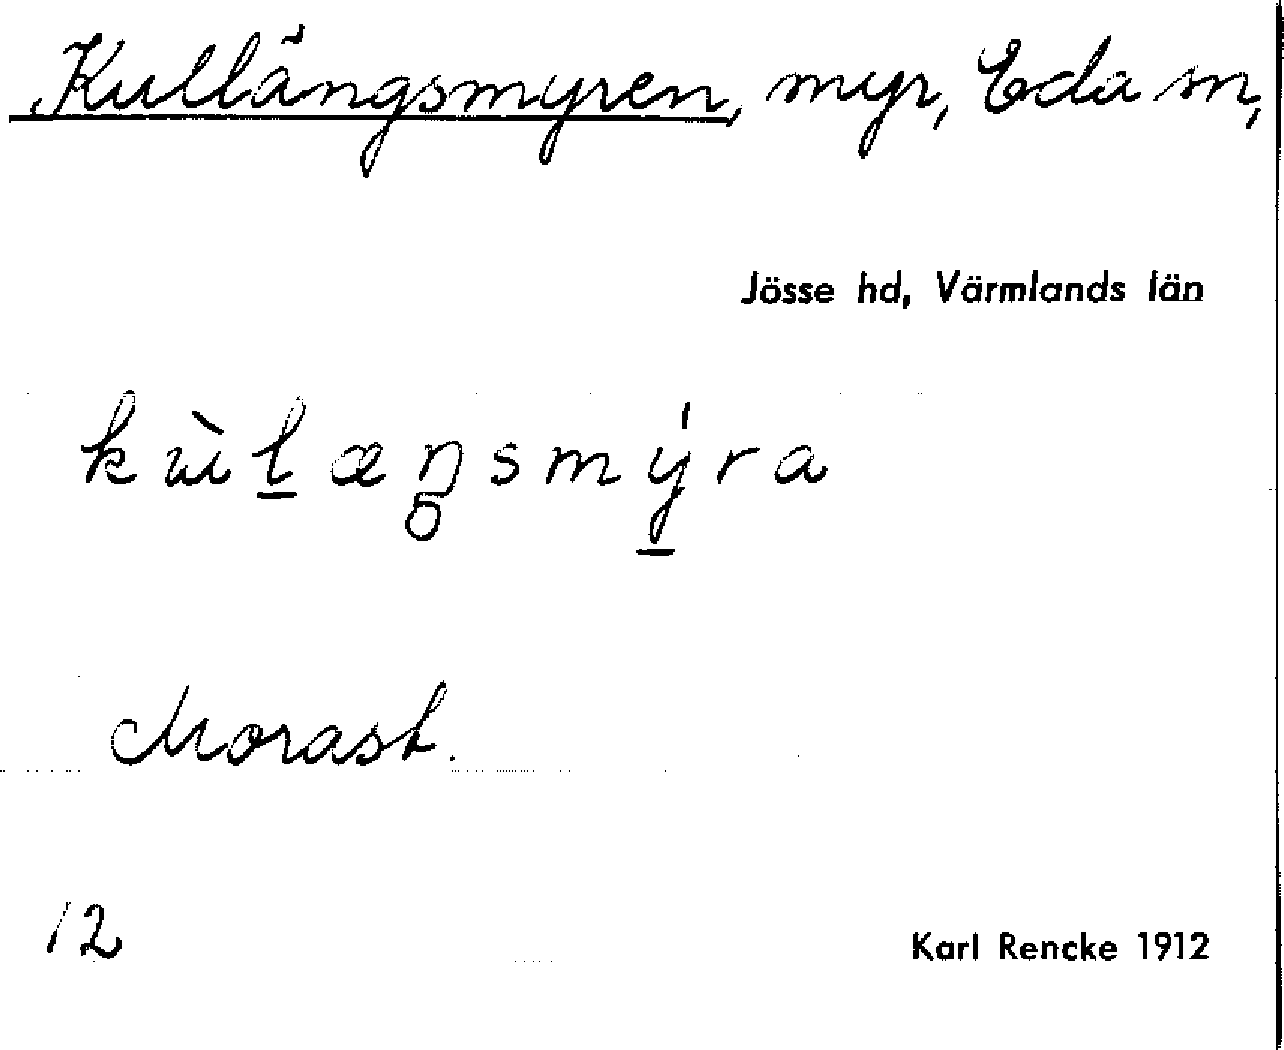 Kullängsmyren, myr, Eda sn,
Jösse hd, Värmlands län
kùlæŋsmýra
Morast.
12
Karl Rencke 1912